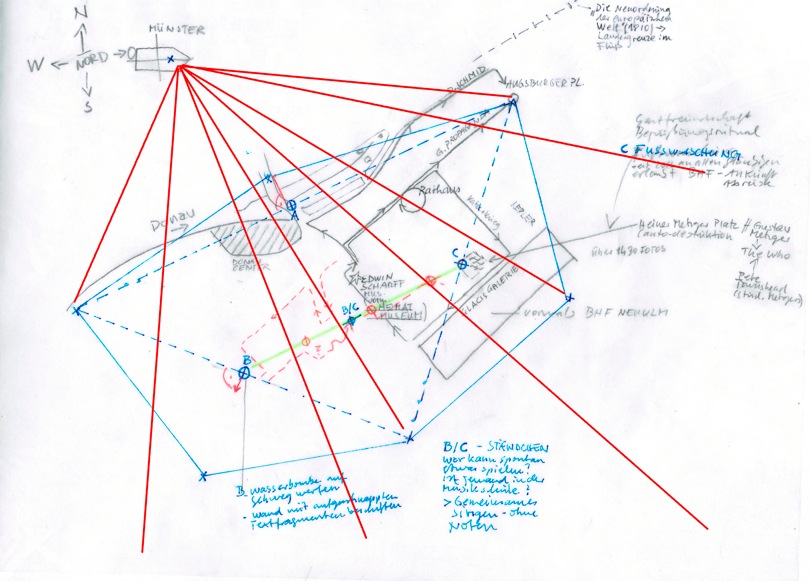 N
W
NORD
O
S
MÜNSTER
"Die Neuordnung
der europäischen
Welt" (1810) →
Landesgrenze im
Fluss
P. SCHMID
AUGSBURGER PL.
G. PROPAPHEN
Gastfreundschaft
Begrüßungsritual
C FUSSWASCHUNG
erlaubt BHF - Ankunft
Abreise
Rathaus
Donau
LEDLER
A
DONAU
CENTER
Heiner Metzger Platz
(auto-destruktion
Gustav
Metzger
The Who
Pete
Townshend
(Stud. Metzger)
über 1430 FOTOS
C
EDWIN
SCHARFF
MUS.
HEIMAT
MUSEUM
GLACIS GALERIE
vormals BHF NEUULM
B/C
B
B/C - STÄNDCHEN
wer kann spontan
etwas spielen?
ist jemand in der
Musikschule?
> Gemeinsames
singen - ohne
Noten
B wasserbombe auf
Gehweg werfen
- wand mit aufgeschnappten
Textfragmenten beschriften